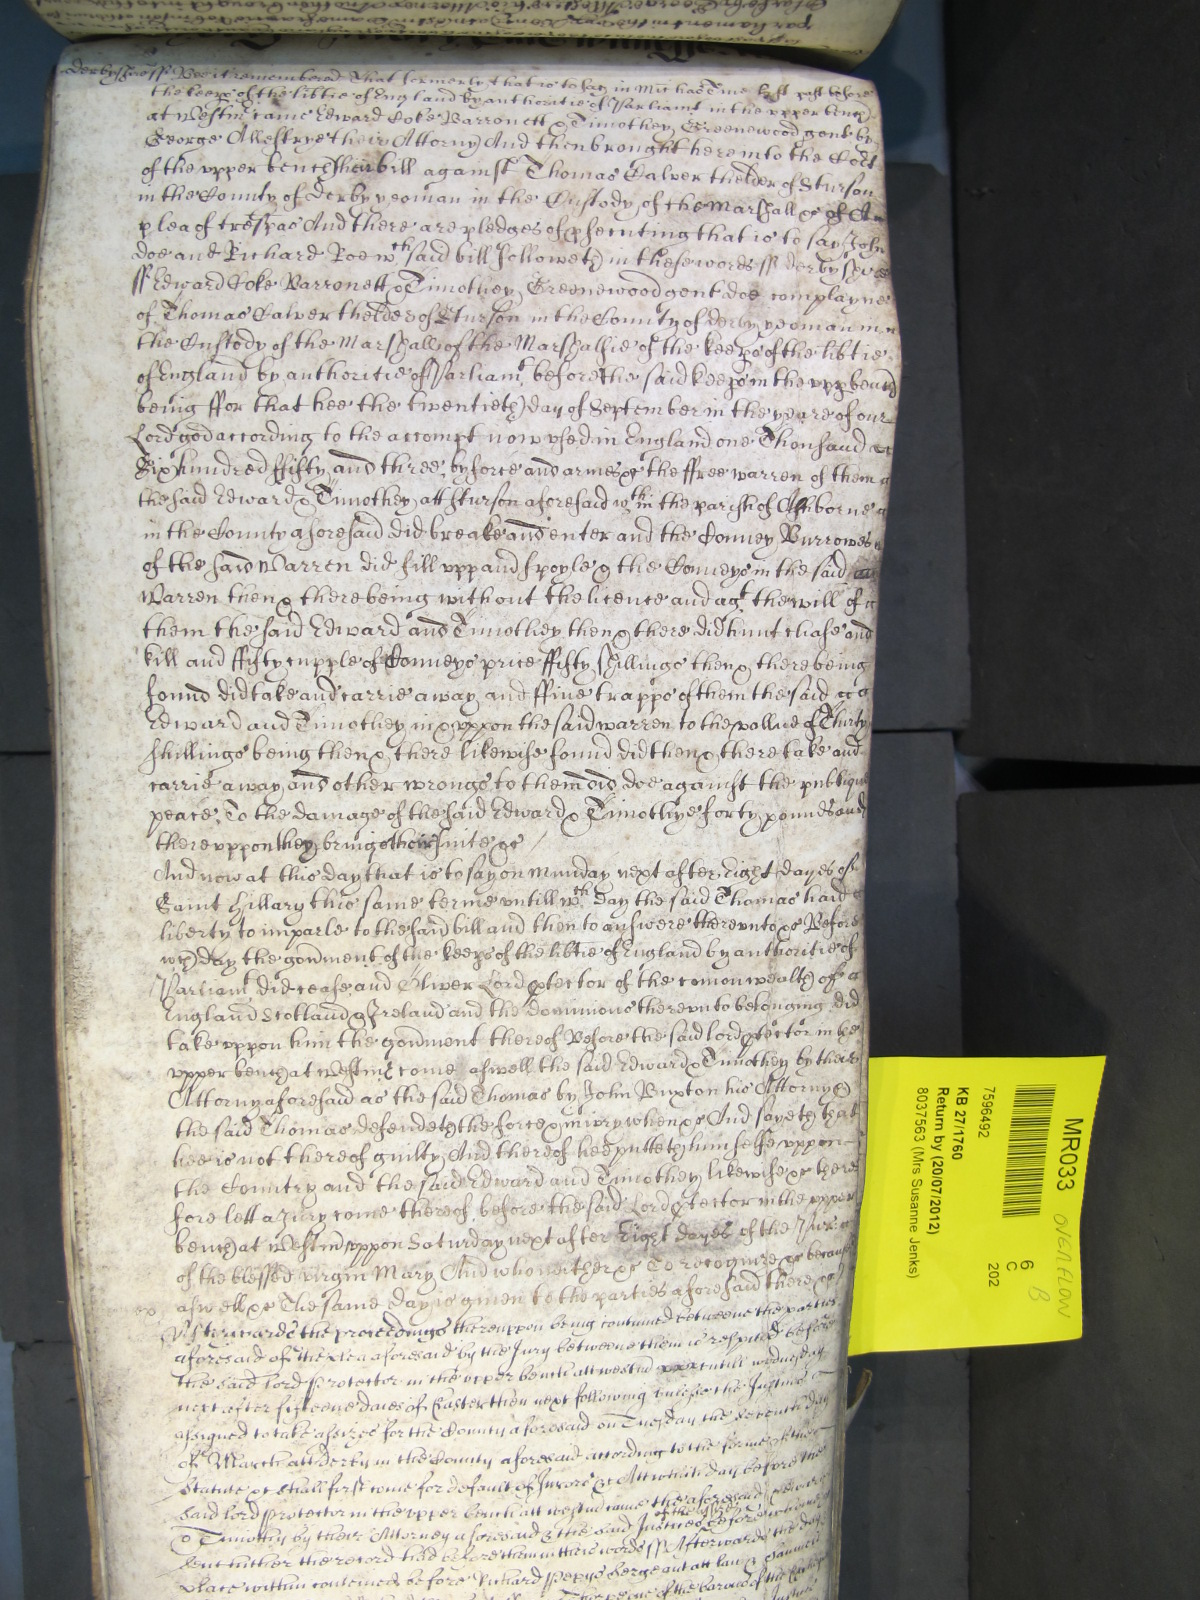 derbyshire ss Bee it remembred That formerly that is to say in Michas Terme last past before
the keeps of the libtie of England by authoritie of Parliamt in the upper bench
at Westm came Edward Coke Barronett & Timothey Greenewood gent by
George Allestrye their Attorny And then brought here into the Cort
of the upper bench their bill against Thomas Calver thelder of Sturson
in the County of derby yeoman in the Custody of the Marshall &c of a
plea of trespas And there are pledges of psecuting that is to say John
doe and Richard Roe wch said bill followeth in these words ss derbyshire
ss Edward Coke Barronett & Timothey Greenewood gent doe complayne
of Thomas Calver thelder of Sturson in the County of derby yeoman in
the Custody of the Marshall of the Marshalsie of the keeps of the libtie
of England by authoritie of Parliamt before the said keeps in the upp bench
being ffor that hee the twentieth day of September in the yeare of our
Lord god according to the accompt now used in England one Thousand
Six hundred ffifty and three by force and armes &c the ffree warren of them
the said Edward & Timothey att Sturson aforesaid wth in the parish of Ashborne
in the County aforesaid did breake and enter and the Conney Burrowes
of the said Warren did fill upp and spoyle & the Conneys in the said
Warren then & there being without the licence and agt the will of
them the said Edward and Timothey then & there did hunt chase and
kill and ffifty cupple of Conneys price ffifty shillings then & there being
found did take and carrie away and ffive trapps of them the said
Edward and Timothey in & uppon the said warren to the vallue of Thirty
shillings being then & there likewise found did then & there take and
carrie away and other wrongs to them did doe against the publique
peace To the damage of the said Edward & Timothye forty pounds and
thereuppon they bring their suite &c
And now at this day that is to say on Munday next after Eight dayes of
Saint Hillary this same terme untill wch day the said Thomas had
liberty to imparle to the said bill and then to answere thereunto &c Before
wch day the govment of the keeps of the libtie of England by authoritie of
Parliamt did cease and Oliver Lord ptector of the comonwealth of
England Scotland & Ireland and the dominions thereunto belonging did
take uppon him the govment thereof Before the said lord ptector in the
upper bench at Westm come aswell the said Edward & Timothey by their
Attorny aforesaid as the said Thomas by John Buxton his Attorny &
the said Thomas defendeth the force & iniury when &c And sayeth that
hee is not thereof guilty And thereof hee putteth himselfe uppon
the Country and the said Edward and Timothey likewise &c there
fore lett a Jury come thereof before the said Lord ptector in the upper
bench at Westm uppon Saturday next after Eight dayes of the
of the blessed virgin Mary And who neither &c To recognize &c because
aswell &c The same day is given to the parties aforesaid there &c
Afterwards the proceedings thereuppon being continued betweene the parties
aforesaid of the plea aforesaid by the Jury betweene them is respited before
the said lord Protector in the upper bench att westm untill wednesday
next after fifteene daies of Easter then next following unlesse the Justices
assigned to take assizes for the County aforesaid on Tuesday the seventh day
of March att derby in the County aforesaid according to the forme of the
Statute &c shall first come for default of Jurors &c Att which day before the
said lord Protector in the upper bench att westm came the aforesaid Edward
& Timothy by their Attorney aforesaid & the said Justices of the assizes before whome
sent hither the record had before them in theis words ss Afterwards the day &
place within conteined before Richard Pepys Serjeant att law &
Thorpe one of the barons of the
MR033
OVERFLOW
B
6
C
202
7596492
KB 27/1760
Return by (20/07/2012)
8037563 (Mrs Susanne Jenks)